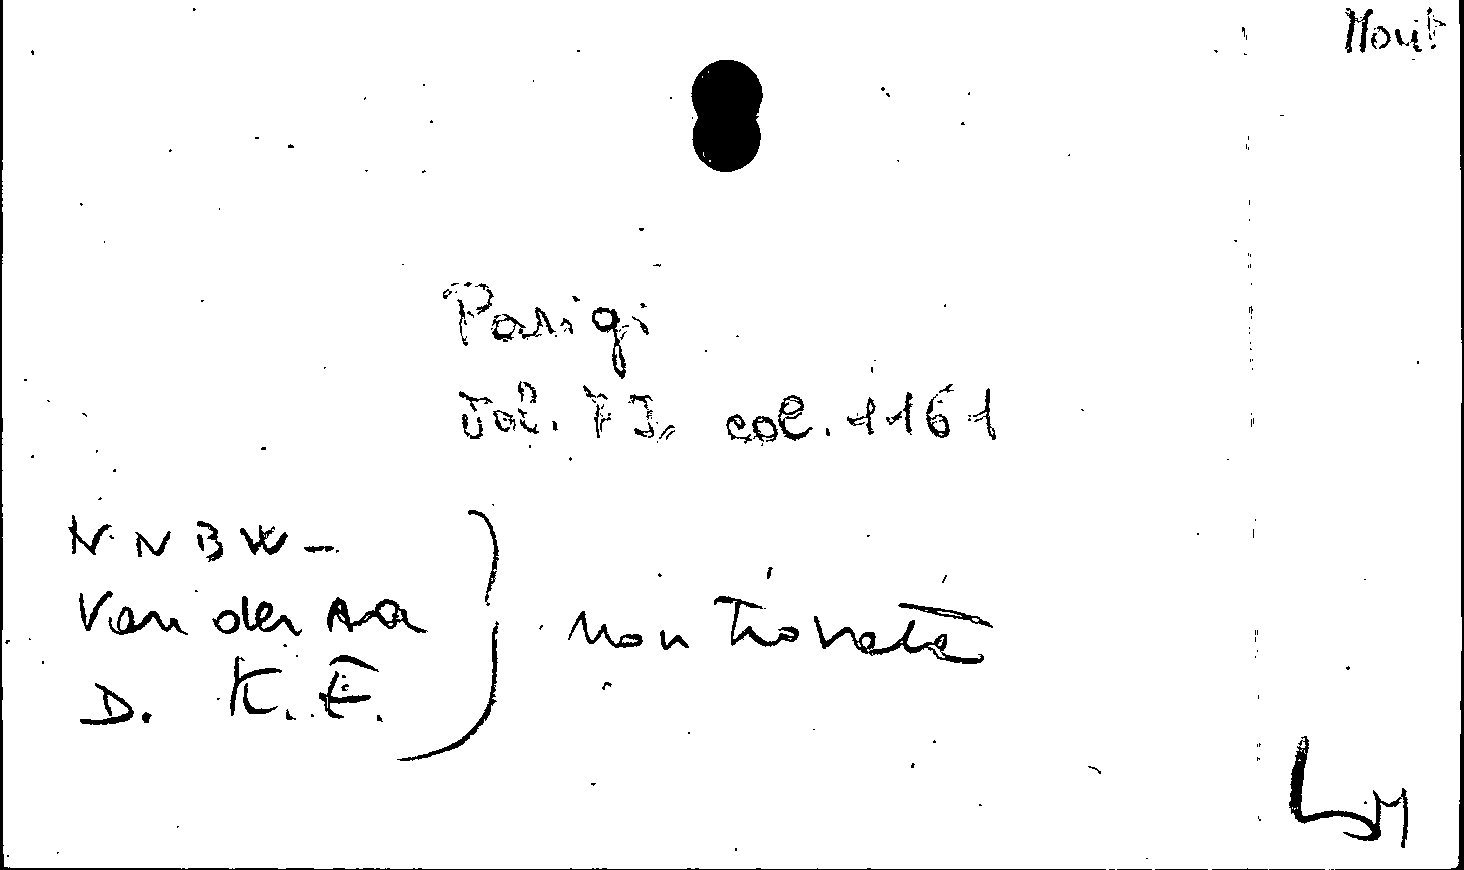 Mont
Parigi
Vol. VI, col. 1161
N N B W -
Van der Aa
D. K. E.
non trovato